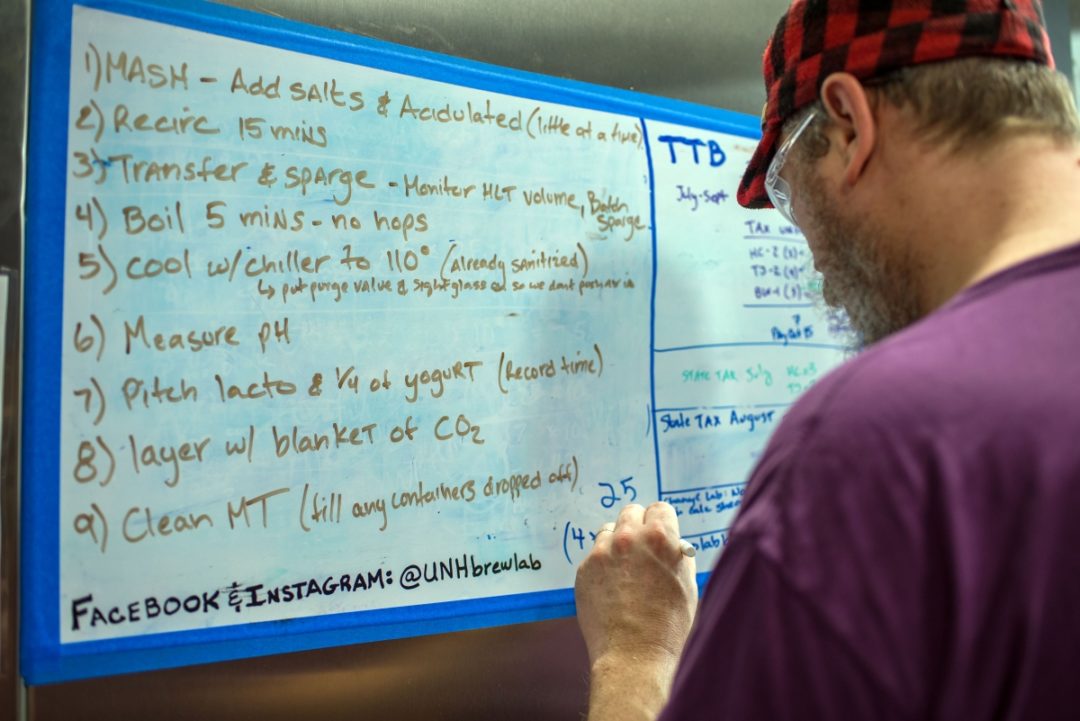 1) MASH - Add SAlts & Acidulated (little at a time)
2) Recirc 15 mins
3) Transfer & sparge - Monitor HLT volume, Batch
Sparge
4) Boil 5 mins - no hops
5) Cool w/ chiller to 110° (Already sanitized)
↳ put purge valve & sightglass on so we dont push air in
6) Measure pH
7) Pitch lacto & 1/4 of yogurt (Record time)
8) layer w/ blanket of CO2
9) Clean MT (fill any containers dropped off)
25
(4
FACEBOOK & INSTAGRAM: @UNHbrewlab
TTB
July-Sept
TAX
HC-2 (3)
TJ-2 (4)
STATE TAX July
State TAX August